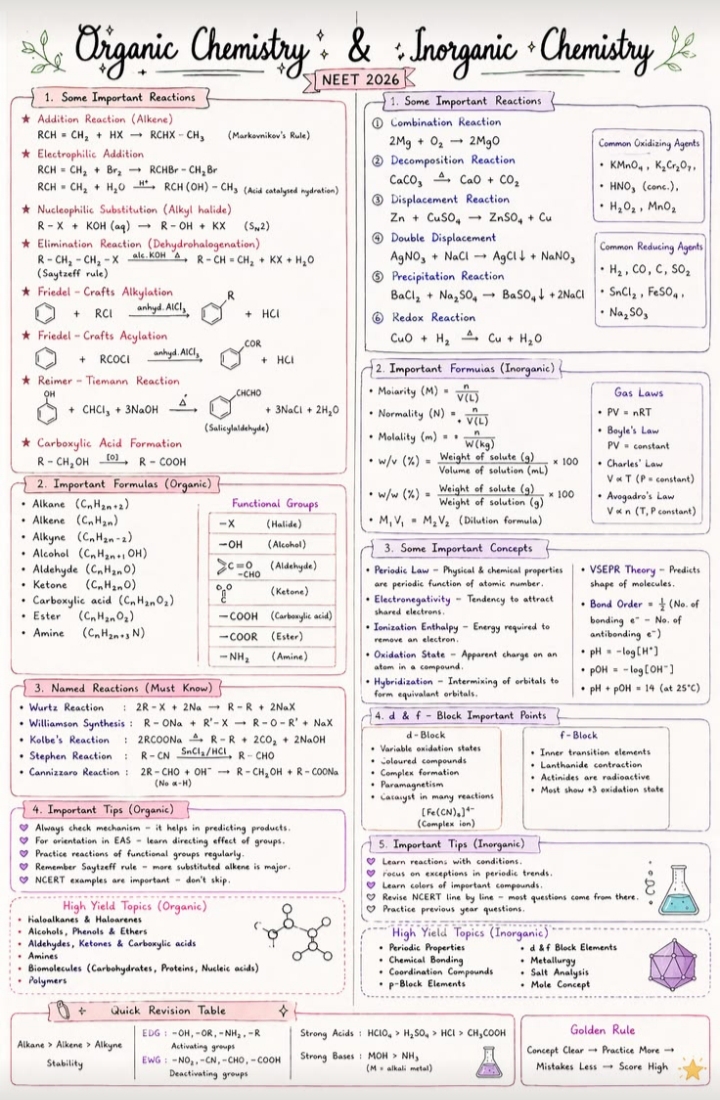 Organic Chemistry & Inorganic Chemistry
NEET 2026
1. Some Important Reactions
★ Addition Reaction (Alkene)
RCH = CH₂ + HX → RCHX – CH₃ (Markovnikov's Rule)
★ Electrophilic Addition
RCH = CH₂ + Br₂ → RCHBr – CH₂Br
RCH = CH₂ + H₂O —H⁺→ RCH(OH) – CH₃ (Acid catalysed hydration)
★ Nucleophilic Substitution (Alkyl halide)
R – X + KOH (aq) → R – OH + KX (Sₙ2)
★ Elimination Reaction (Dehydrohalogenation)
R – CH₂ – CH₂ – X —alc.KOH Δ→ R – CH = CH₂ + KX + H₂O
(Saytzeff rule)
★ Friedel – Crafts Alkylation
R
+ RCl —anhyd. AlCl₃→ + HCl
★ Friedel – Crafts Acylation
COR
+ RCOCl —anhyd. AlCl₃→ + HCl
★ Reimer – Tiemann Reaction
OH CHCHO
+ CHCl₃ + 3NaOH —Δ→ + 3NaCl + 2H₂O
(Salicylaldehyde)
★ Carboxylic Acid Formation
R – CH₂OH —[O]→ R – COOH
2. Important Formulas (Organic)
• Alkane (CₙH₂ₙ₊₂)
• Alkene (CₙH₂ₙ)
• Alkyne (CₙH₂ₙ₋₂)
• Alcohol (CₙH₂ₙ₊₁OH)
• Aldehyde (CₙH₂ₙO)
• Ketone (CₙH₂ₙO)
• Carboxylic acid (CₙH₂ₙO₂)
• Ester (CₙH₂ₙO₂)
• Amine (CₙH₂ₙ₊₃N)
Functional Groups
–X (Halide)
–OH (Alcohol)
C=O –CHO (Aldehyde)
(Ketone)
–COOH (Carboxylic acid)
–COOR (Ester)
–NH₂ (Amine)
3. Named Reactions (Must Know)
• Wurtz Reaction : 2R – X + 2Na → R – R + 2NaX
• Williamson Synthesis : R – ONa + R' – X → R – O – R' + NaX
• Kolbe's Reaction : 2RCOONa —Δ→ R – R + 2CO₂ + 2NaOH
• Stephen Reaction : R – CN —SnCl₂/HCl→ R – CHO
• Cannizzaro Reaction : 2R – CHO + OH⁻ → R – CH₂OH + R – COONa
(No α-H)
4. Important Tips (Organic)
Always check mechanism – it helps in predicting products.
For orientation in EAS – learn directing effect of groups.
Practice reactions of functional groups regularly.
Remember Saytzeff rule – more substituted alkene is major.
NCERT examples are important – don't skip.
High Yield Topics (Organic)
• Haloalkanes & Haloarenes
• Alcohols, Phenols & Ethers
• Aldehydes, Ketones & Carboxylic acids
• Amines
• Biomolecules (Carbohydrates, Proteins, Nucleic acids)
• Polymers
1. Some Important Reactions
① Combination Reaction
2Mg + O₂ → 2MgO
② Decomposition Reaction
CaCO₃ —Δ→ CaO + CO₂
③ Displacement Reaction
Zn + CuSO₄ → ZnSO₄ + Cu
④ Double Displacement
AgNO₃ + NaCl → AgCl↓ + NaNO₃
⑤ Precipitation Reaction
BaCl₂ + Na₂SO₄ → BaSO₄↓ + 2NaCl
⑥ Redox Reaction
CuO + H₂ —Δ→ Cu + H₂O
Common Oxidizing Agents
• KMnO₄, K₂Cr₂O₇,
• HNO₃ (conc.),
• H₂O₂, MnO₂
Common Reducing Agents
• H₂, CO, C, SO₂
• SnCl₂, FeSO₄,
• Na₂SO₃
2. Important Formulas (Inorganic)
• Molarity (M) = n / V(L)
• Normality (N) = n / V(L)
• Molality (m) = n / W(kg)
• w/v (%) = Weight of solute (g) / Volume of solution (mL) × 100
• w/w (%) = Weight of solute (g) / Weight of solution (g) × 100
• M₁V₁ = M₂V₂ (Dilution formula)
Gas Laws
• PV = nRT
• Boyle's Law
PV = constant
• Charles' Law
V ∝ T (P = constant)
• Avogadro's Law
V ∝ n (T, P constant)
3. Some Important Concepts
• Periodic Law – Physical & chemical properties
are periodic function of atomic number.
• Electronegativity – Tendency to attract
shared electrons.
• Ionization Enthalpy – Energy required to
remove an electron.
• Oxidation State – Apparent charge on an
atom in a compound.
• Hybridization – Intermixing of orbitals to
form equivalent orbitals.
• VSEPR Theory – Predicts
shape of molecules.
• Bond Order = ½ (No. of
bonding e⁻ – No. of
antibonding e⁻)
• pH = –log[H⁺]
• pOH = –log[OH⁻]
• pH + pOH = 14 (at 25°C)
4. d & f – Block Important Points
d-Block
• Variable oxidation states
• Coloured compounds
• Complex formation
• Paramagnetism
• Catalyst in many reactions
[Fe(CN)₆]⁴⁻
(Complex ion)
f-Block
• Inner transition elements
• Lanthanide contraction
• Actinides are radioactive
• Most show +3 oxidation state
5. Important Tips (Inorganic)
Learn reactions with conditions.
Focus on exceptions in periodic trends.
Learn colors of important compounds.
Revise NCERT line by line – most questions come from there.
Practice previous year questions.
High Yield Topics (Inorganic)
• Periodic Properties
• Chemical Bonding
• Coordination Compounds
• p-Block Elements
• d & f Block Elements
• Metallurgy
• Salt Analysis
• Mole Concept
Quick Revision Table
Alkane > Alkene > Alkyne
Stability
EDG : –OH, –OR, –NH₂, –R
Activating groups
EWG : –NO₂, –CN, –CHO, –COOH
Deactivating groups
Strong Acids : HClO₄ > H₂SO₄ > HCl > CH₃COOH
Strong Bases : MOH > NH₃
(M = alkali metal)
Golden Rule
Concept Clear → Practice More →
Mistakes Less → Score High